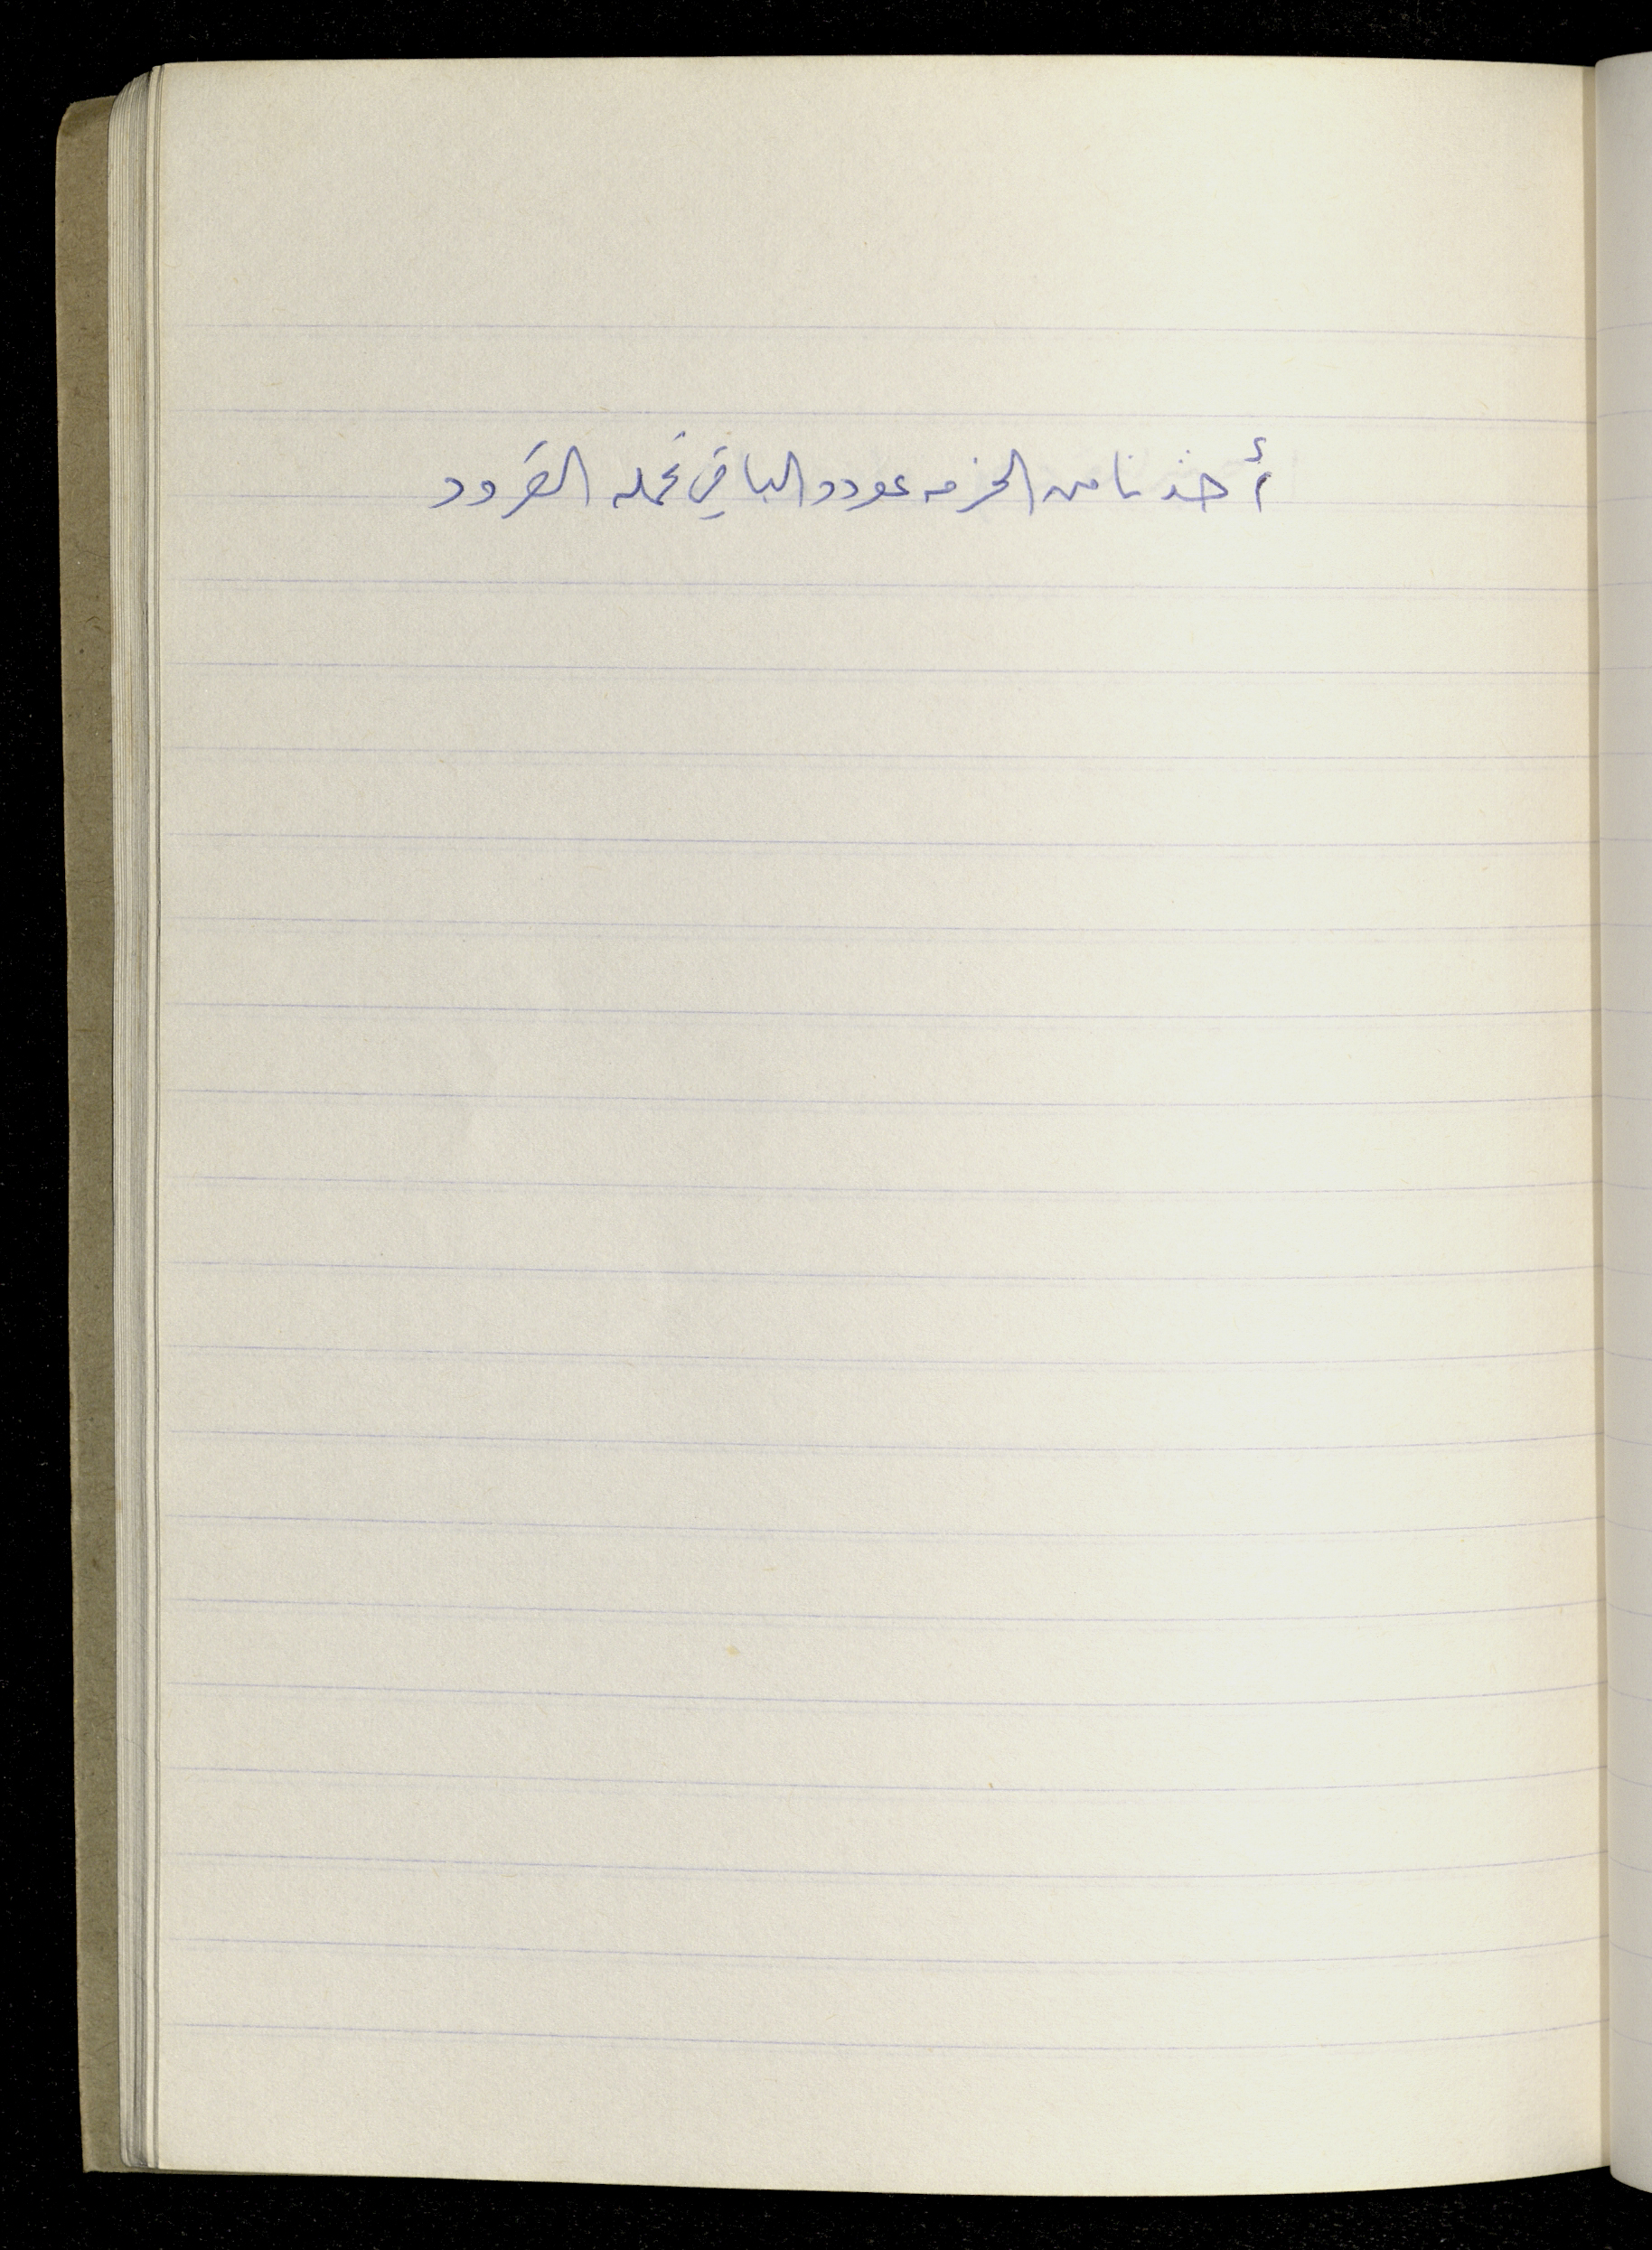 أخذنا من الحزمه عود والباقي تحمله القرود